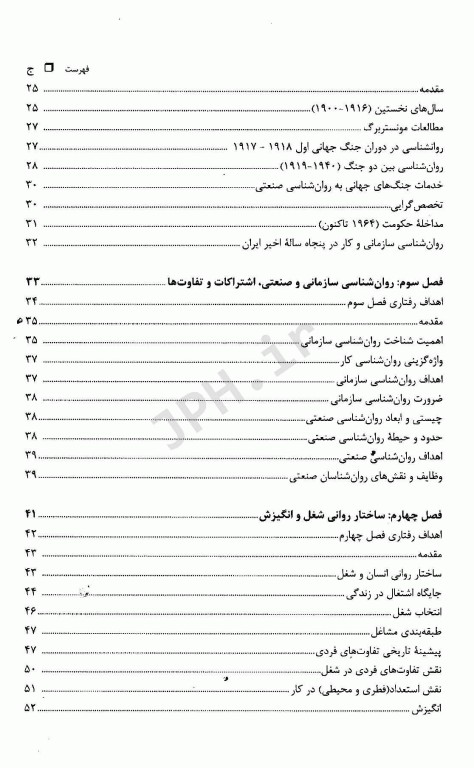 فهرست ❒ ج
مقدمه ........ ۲۵
سال‌های نخستین (۱۹۱۶-۱۹۰۰) ........ ۲۵
مطالعات مونستربرگ ........ ۲۷
روانشناسی در دوران جنگ جهانی اول ۱۹۱۸ - ۱۹۱۷ ........ ۲۷
روان‌شناسی بین دو جنگ (۱۹۴۰-۱۹۱۹) ........ ۲۸
خدمات جنگ‌های جهانی به روان‌شناسی صنعتی ........ ۳۰
تخصص‌گرایی ........ ۳۰
مداخلهٔ حکومت (۱۹۶۴ تاکنون) ........ ۳۱
روان‌شناسی سازمانی و کار در پنجاه سالهٔ اخیر ایران ........ ۳۲
فصل سوم: روان‌شناسی سازمانی و صنعتی، اشتراکات و تفاوت‌ها ........ ۳۳
اهداف رفتاری فصل سوم ........ ۳۴
مقدمه ........ ۳۵
اهمیت شناخت روان‌شناسی سازمانی ........ ۳۵
واژه‌گزینی روان‌شناسی کار ........ ۳۷
اهداف روان‌شناسی سازمانی ........ ۳۷
ضرورت روان‌شناسی سازمانی ........ ۳۸
چیستی و ابعاد روان‌شناسی صنعتی ........ ۳۸
حدود و حیطهٔ روان‌شناسی صنعتی ........ ۳۸
اهداف روان‌شناسی صنعتی ........ ۳۹
وظایف و نقش‌های روان‌شناسان صنعتی ........ ۳۹
فصل چهارم: ساختار روانی شغل و انگیزش ........ ۴۱
اهداف رفتاری فصل چهارم ........ ۴۲
مقدمه ........ ۴۳
ساختار روانی انسان و شغل ........ ۴۳
جایگاه اشتغال در زندگی ........ ۴۴
انتخاب شغل ........ ۴۶
طبقه‌بندی مشاغل ........ ۴۷
پیشینهٔ تاریخی تفاوت‌های فردی ........ ۴۷
نقش تفاوت‌های فردی در شغل ........ ۵۰
نقش استعداد(فطری و محیطی) در کار ........ ۵۱
انگیزش ........ ۵۲
JPH.ir